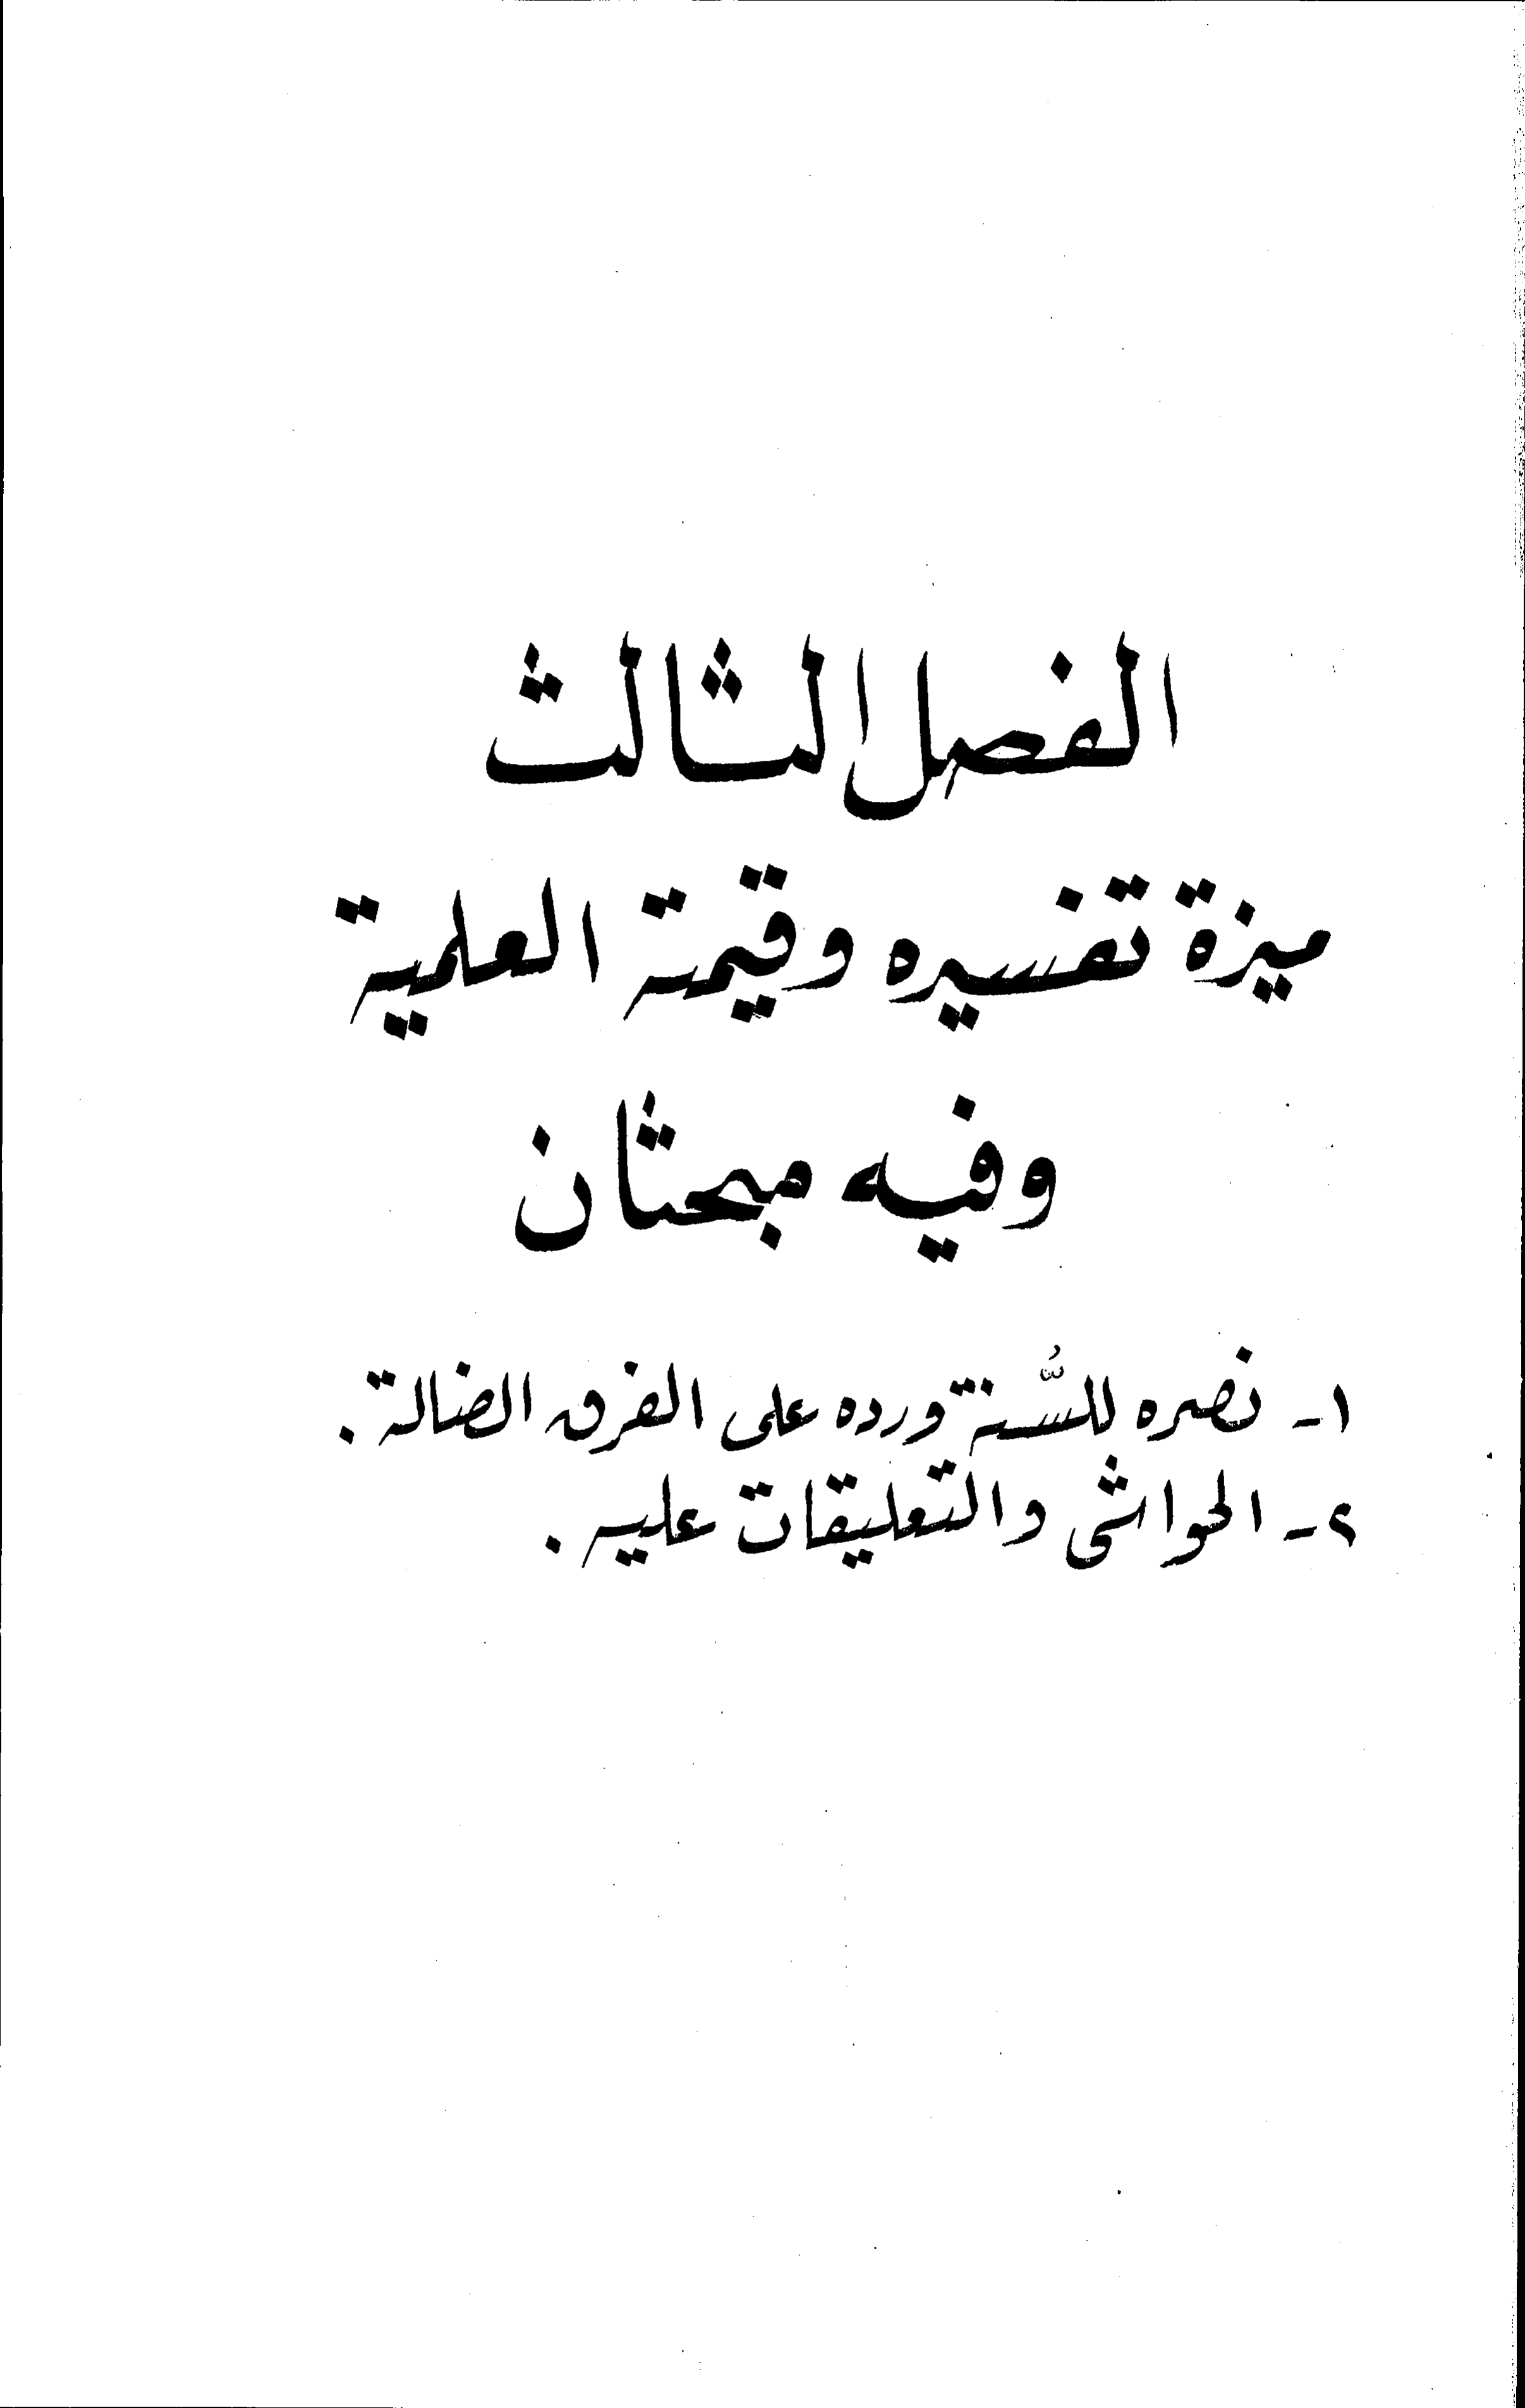 الفصل الثالث
ميزة تفسيره وقيمته العلمية
وفيه مبحثان
١- نصره للسُّنة ورده على الفرق الضالة .
٢- الحواشى والتعليقات عليه .